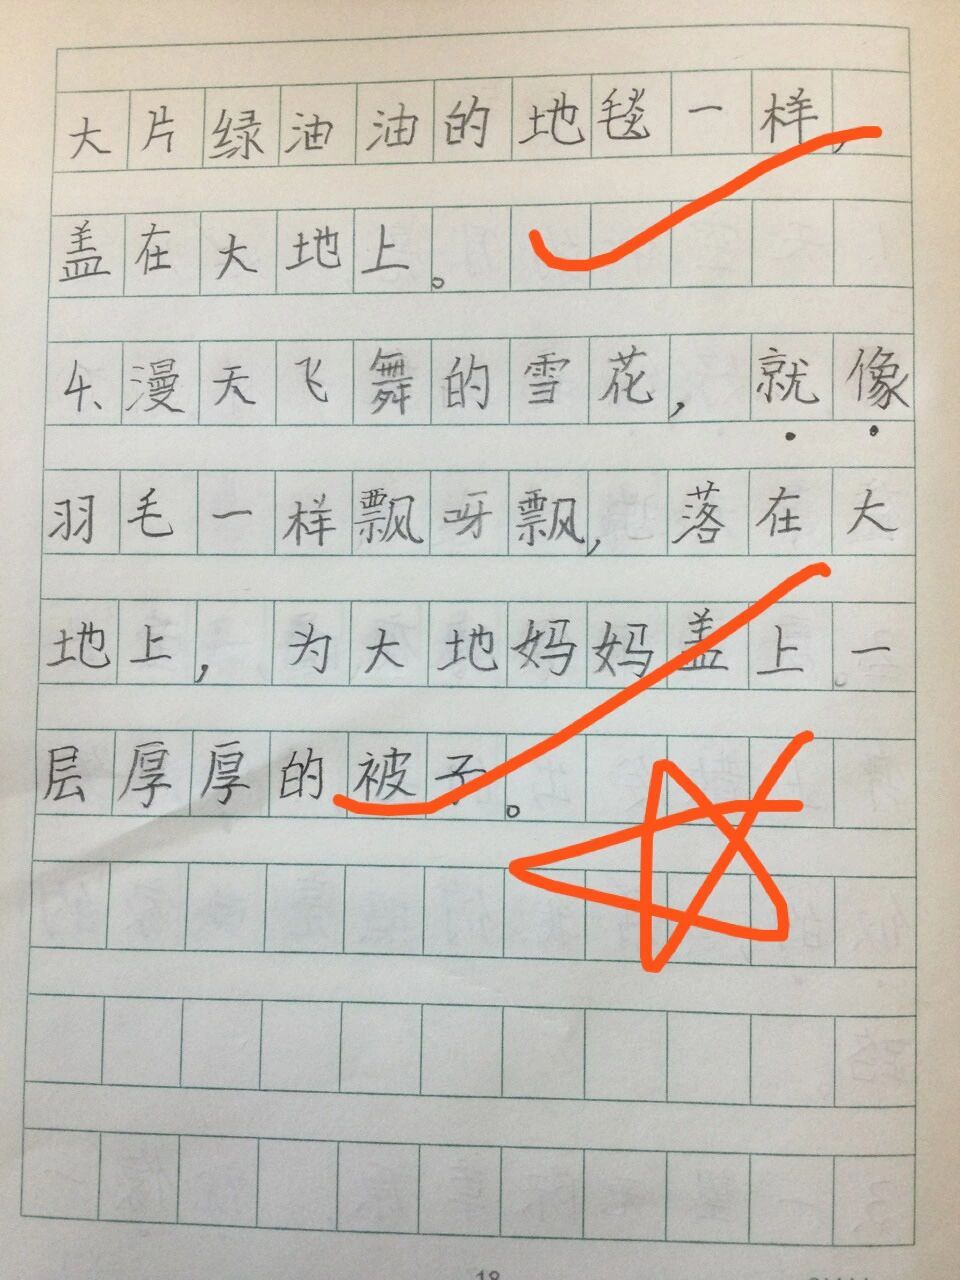 大片绿油油的地毯一样，
盖在大地上。
4、漫天飞舞的雪花，就像
羽毛一样飘呀飘，落在大
地上，为大地妈妈盖上一
层厚厚的被子。
18